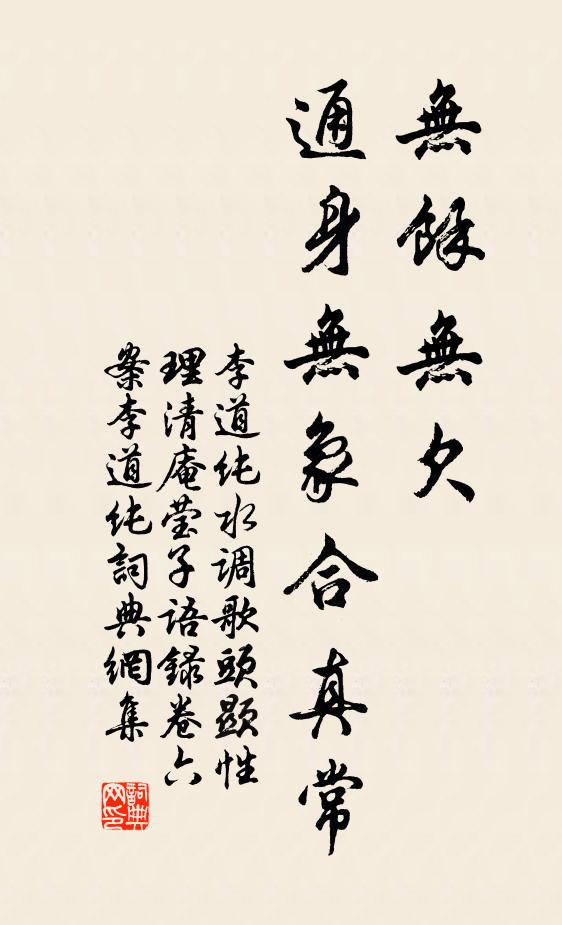 無餘無欠
通身無象合真常
李道纯水调歌頭顯性
理清庵莹子语録卷六
案李道纯詞典網集
詞典网印